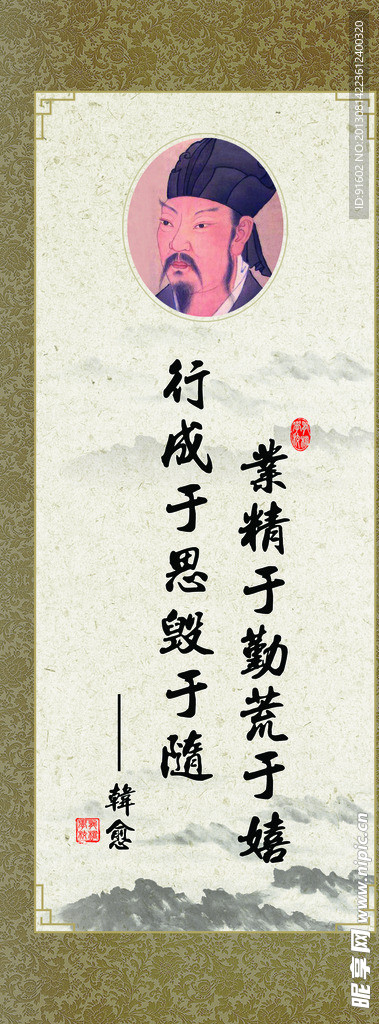 業精于勤荒于嬉
行成于思毀于隨
——韓愈
ID:91602 NO:20130814223612400320
昵享网 www.nipic.cn